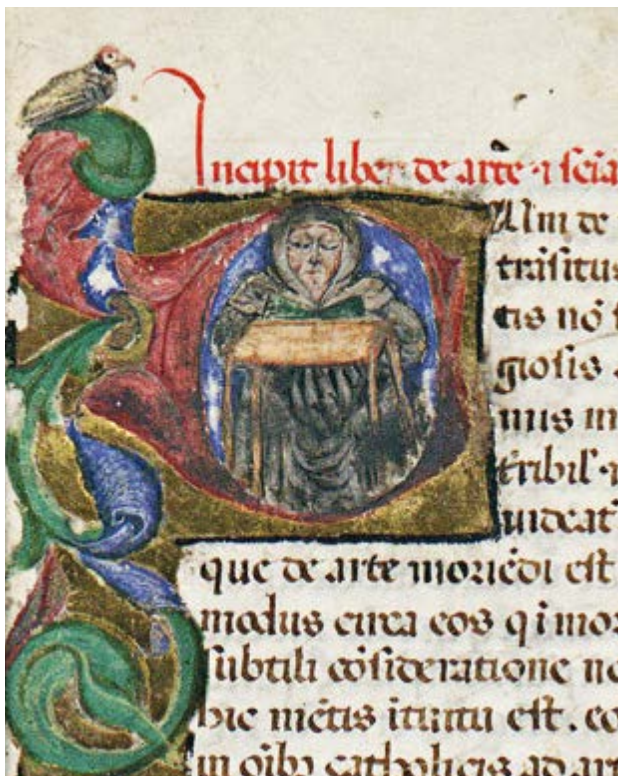 Incipit liber de arte ⁊ scia
Cum de
trāsitus
tis nō
giosis
mus in
t̄ribil'
uideat
que de arte moriēdi est
modus circa eos qi mor
subtili cōsideratione no
hic mētis ītuitu est. co
in oībꝫ catholicis ad art